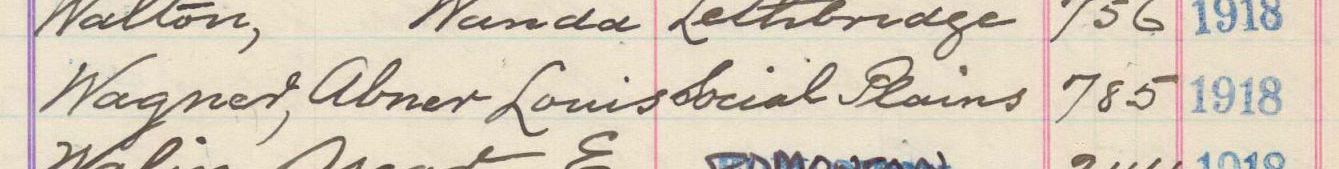 Walton, Wanda Lethbridge 756 1918
Wagner, Abner Louis Social Plains 785 1918
E. EDMONTON 1918